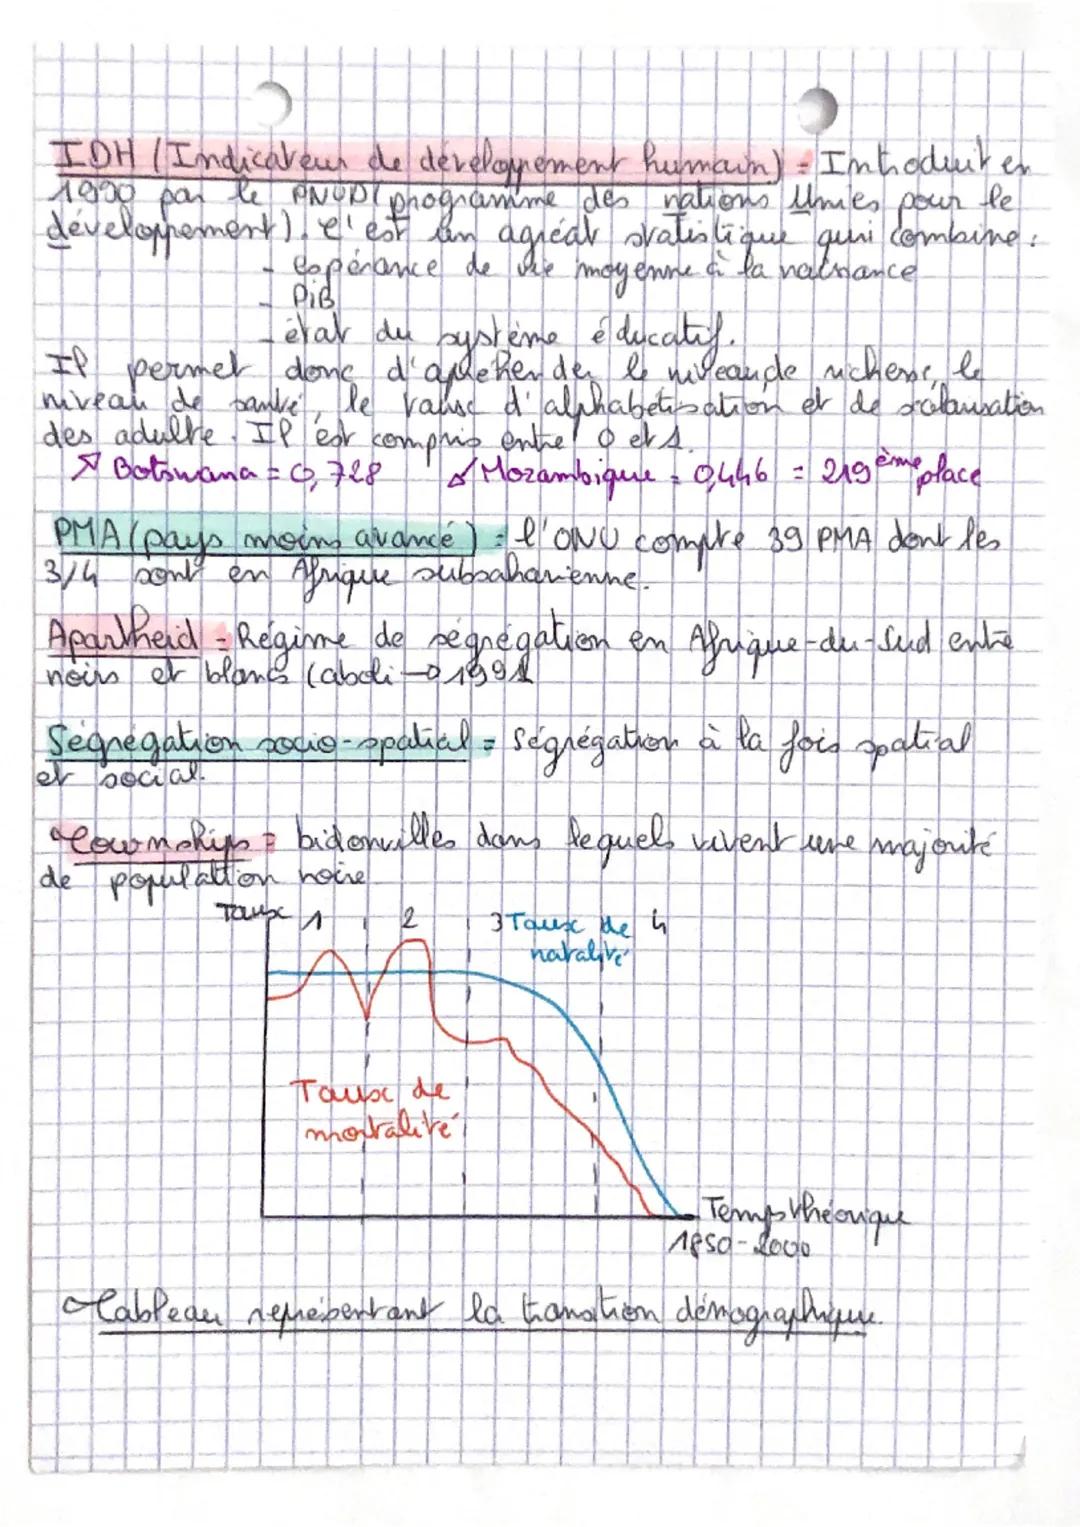 IDH (Indicateur de développement humain) = Introduit en
1990 par le PNUD (programme des nations Unies pour le
développement). C'est un agréat statistique quui combine :
- espérance de vie moyenne à la naissance
- PiB
- état du système éducatif.
Il permet donc d'apréhender le niveau de richesse, le
niveau de santé, le taux d'alphabétisation et de scolarisation
des adulte. Il est compris entre 0 et 1.
↗ Botswana = 0,728 ↙ Mozambique = 0,446 = 219ème place
PMA (pays moins avancé) = l'ONU compte 39 PMA dont les
3/4 sont en Afrique subsaharienne.
Apartheid = Régime de ségrégation en Afrique-du-Sud entre
noirs et blancs (aboli → 1991
Ségrégation socio-spatial = ségrégation à la fois spatial
et social.
Townships = bidonvilles dans lequels vivent une majorité
de population noire
Taux 1 2 3 Taux de 4
natalité
Taux de
mortalité
Temps théorique
1850-2000
Tableau représentant la transtion démographique.